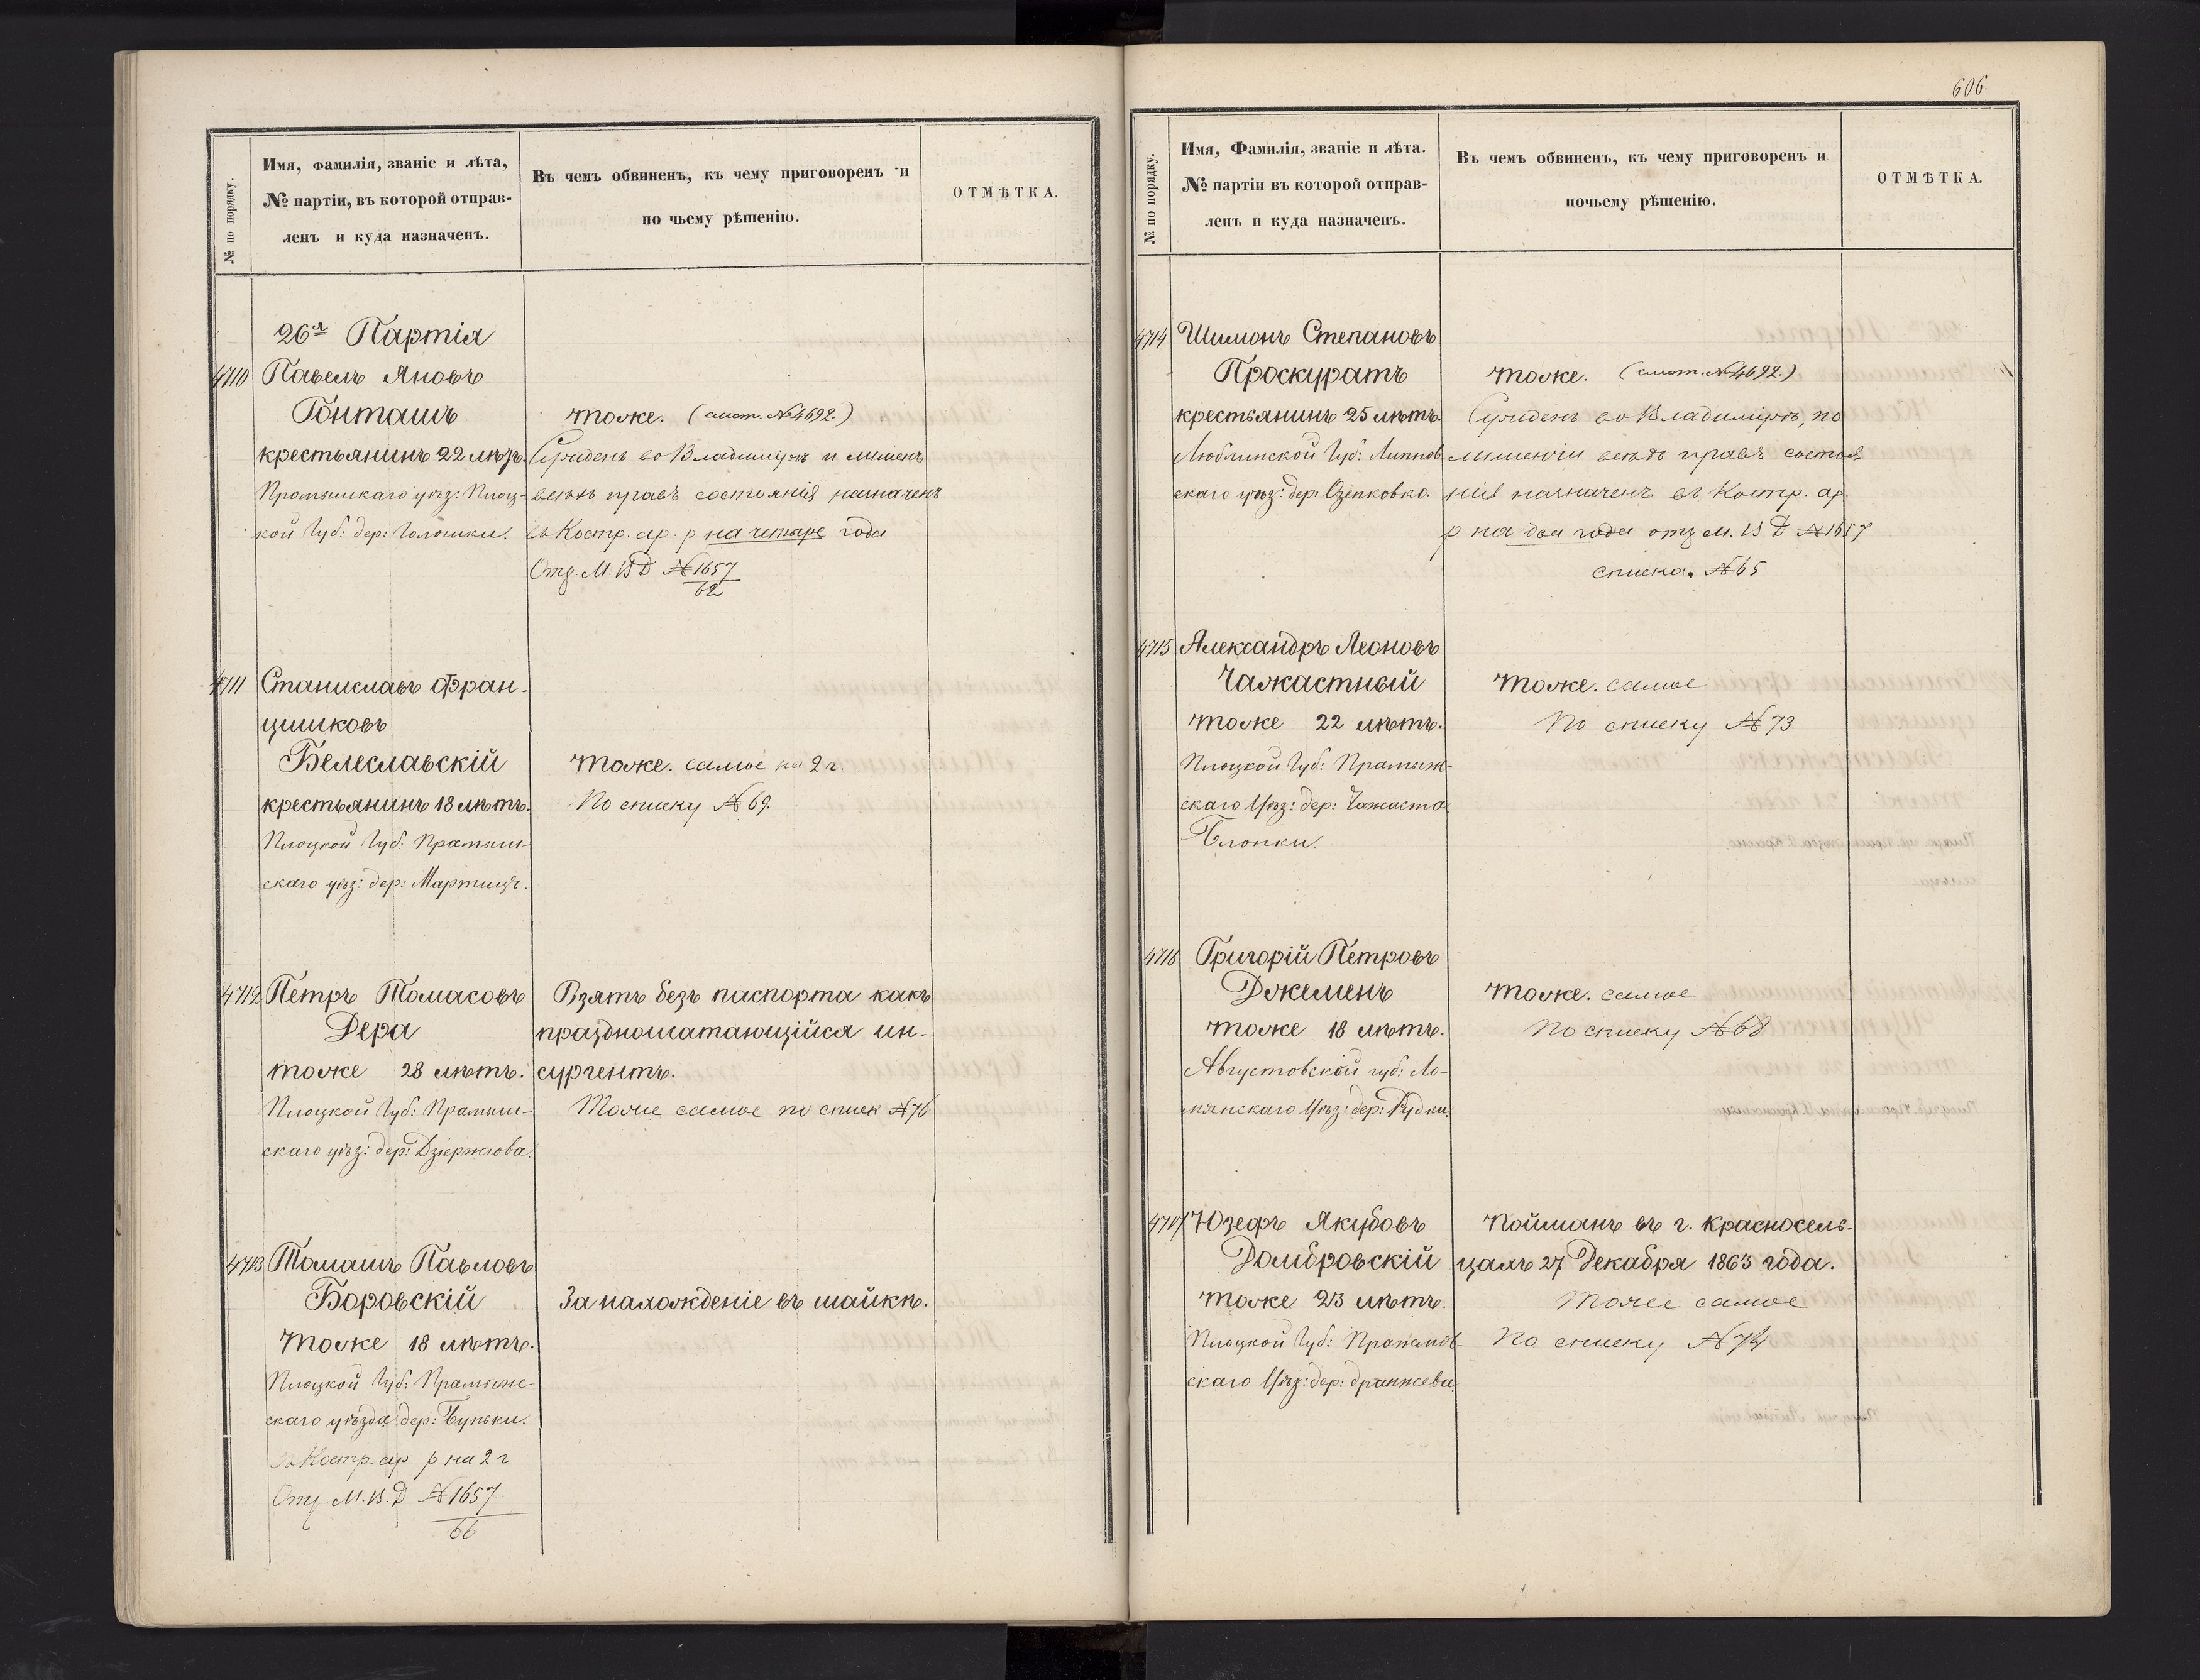 № по порядку.
Имя, фамилія, званіе и лѣта,
№ партіи, въ которой отправ-
ленъ и куда назначенъ.
Въ чемъ обвиненъ, къ чему приговоренъ и
по чьему рѣшенію.
ОТМѢТКА.
26я Партія
4710 Павелъ Яновъ
Гонташъ
тоже. (смот. №4692.)
крестьянинъ 22 лѣтъ.
Сужденъ во Владимірѣ и лишенъ
Прамышкаго уѣз: Плоц-
всѣхъ правъ состоянія назначенъ
кой Губ: дер:Голошки.
въ Костр. ар. р на четыре года
Отз. М. В Д №1657
62
4711 Станиславъ Фран-
цишковъ
Белеславскій
тоже. самое на 2 г.
крестьянинъ 18 лѣтъ.
По списку №69.
Плоцкой Губ: Прамыш-
скаго уѣз: дер: Мартицъ.
4712 Петръ Томасовъ
Взятъ безъ паспорта какъ
Дера
праздношатающійся ин-
тоже 28 лѣтъ.
сургентъ.
Плоцкой Губ: Прамыш-
Тоже самое по списк №76
скаго уѣз: дер: Дзержгова.
4713 Томашъ Павловъ
Боровскій
За нахожденіе въ шайкѣ.
тоже 18 лѣтъ.
Плоцкой Губ: Прамыж-
скаго уѣзда дер: Буньки.
Въ Костр. ар р на 2 г
Отз. М. В. Д №1657.
66
606.
№ по порядку.
Имя, Фамилія, званіе и лѣта.
№ партіи въ которой отправ-
ленъ и куда назначенъ.
Въ чемъ обвиненъ, къ чему приговоренъ и
почьему рѣшенію.
ОТМѢТКА.
4714 Шимонъ Степановъ
Проскуратъ
тоже. (смот. №4692.)
крестьянинъ 25 лѣтъ.
Сужденъ во Владимірѣ, по
Люблинской Губ: Липнов-
лишеніи всѣхъ правъ состоя
скаго уѣз: дер: Озепковко.
нія назначенъ въ Костр. ар.
р на два года отз М. В Д №1657
списка. №65
4715 Александръ Леоновъ
Чажастный
тоже. самое
тоже 22 лѣтъ.
По списку №73
Плоцкой Губ: Прамыж-
скаго Уѣз: дер: Чажаста
Блонки.
4716 Григорій Петровъ
Джеменъ
тоже. самое
тоже 18 лѣтъ.
По списку №68
Августовской губ: Ло-
мянскаго Уѣз: дер: Рудки.
4717 Юзефъ Якубовъ
Пойманъ въ г. Красносель-
Домбровскій
цахъ 27 Декабря 1863 года.
тоже 23 лѣтъ.
Тоже самое
Плоцкой Губ: Пражмов-
По списку №74
скаго Уѣз: дер: дранжева